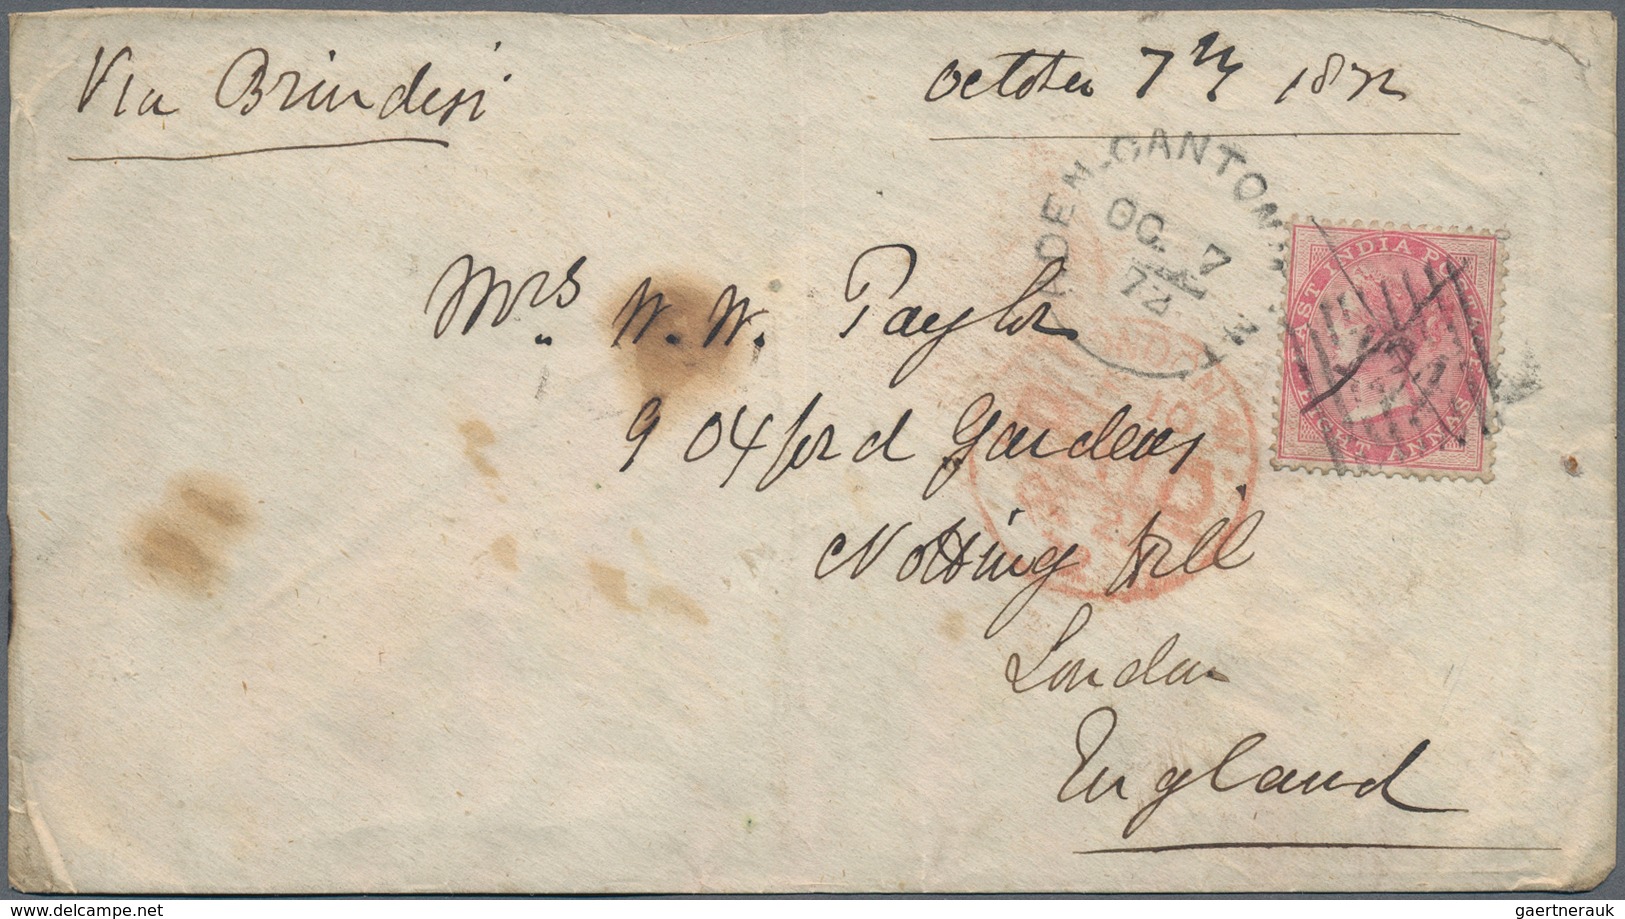 Via Brindisi
October 7th 1872
ADEN-CANTONM
OC. 7
72
EAST INDIA POSTAGE
EIGHT ANNAS
Mrs W. W. Taylor
9 Oxford Gardens
LONDON N.W.
10
PAID
Notting Hill
London
England
www.delcampe.net
gaertnerauk